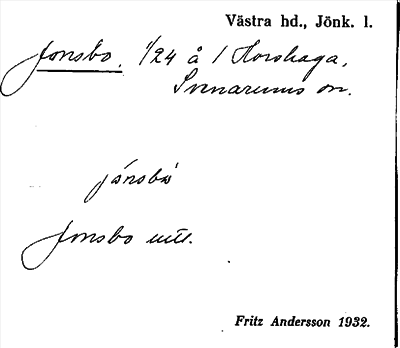 Västra hd., Jönk. l.
Jonsbo. 1/24 å 1 Horshaga,
Svenarums sn.
jónsbò
Jonsbo utt.
Fritz Andersson 1932.